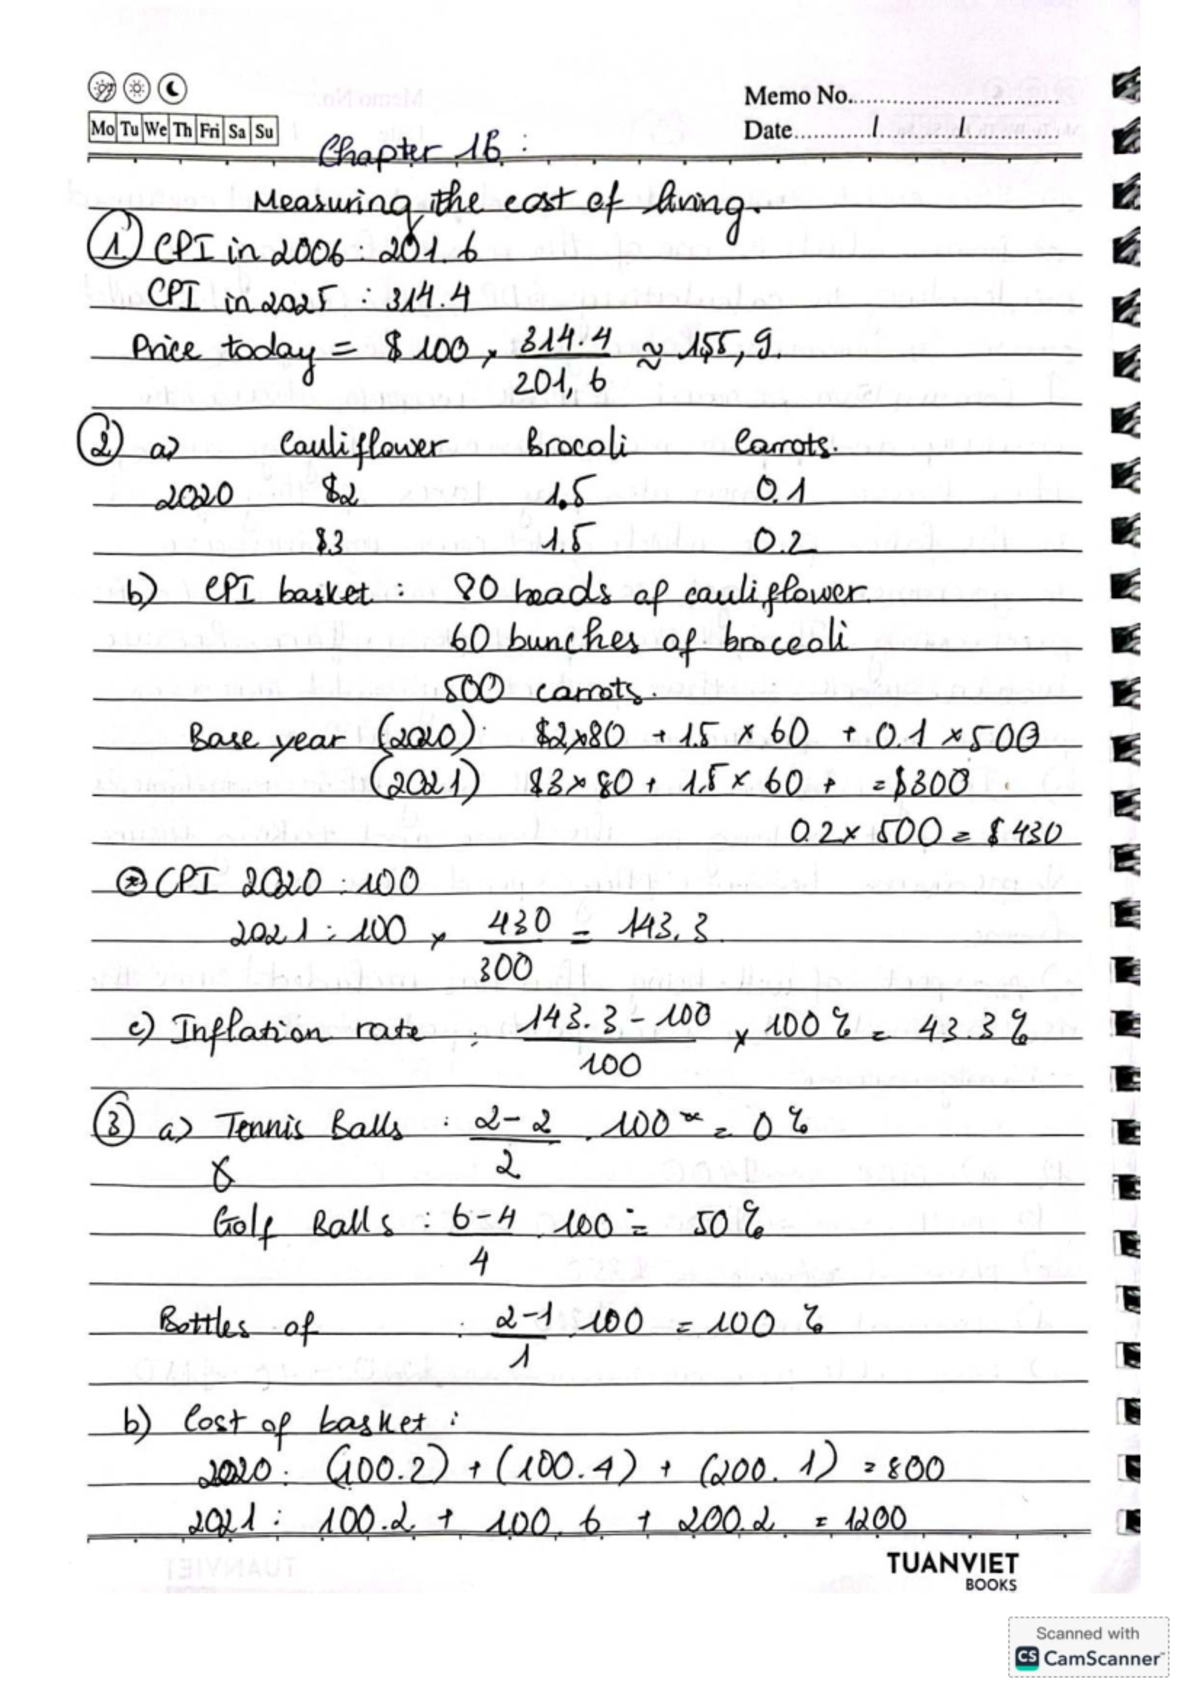 Memo No.
Mo Tu We Th Fri Sa Su
Date / /
Chapter 16:
Measuring the cost of living.
1. CPI in 2006: 201.6
CPI in 2025: 314.4
Price today = $100 × 314.4 / 201,6 ≈ 155,9.
2) a) Cauliflower Brocoli Carrots.
2020 $2 1.5 0.1
$3 1.5 0.2
b) CPI basket: 80 heads of cauliflower.
60 bunches of broccoli
500 carrots.
Base year (2020): $2×80 + 1.5 × 60 + 0.1 × 500
(2021) $3×80 + 1,5 × 60 + = $300
0.2 × 500 = $430
* CPI 2020: 100
2021: 100 × 430 / 300 = 143.3
c) Inflation rate: 143.3 - 100 / 100 × 100% = 43.3%
3) a) Tennis Balls: 2-2 / 2 . 100 = 0%
Golf Balls: 6-4 / 4 . 100 = 50%
Bottles of : 2-1 / 1 . 100 = 100%
b) Cost of basket:
2020: (100.2) + (100.4) + (200.1) = 800
2021: 100.2 + 100.6 + 200.2 = 1200
TUANVIET
BOOKS
Scanned with
CS CamScanner